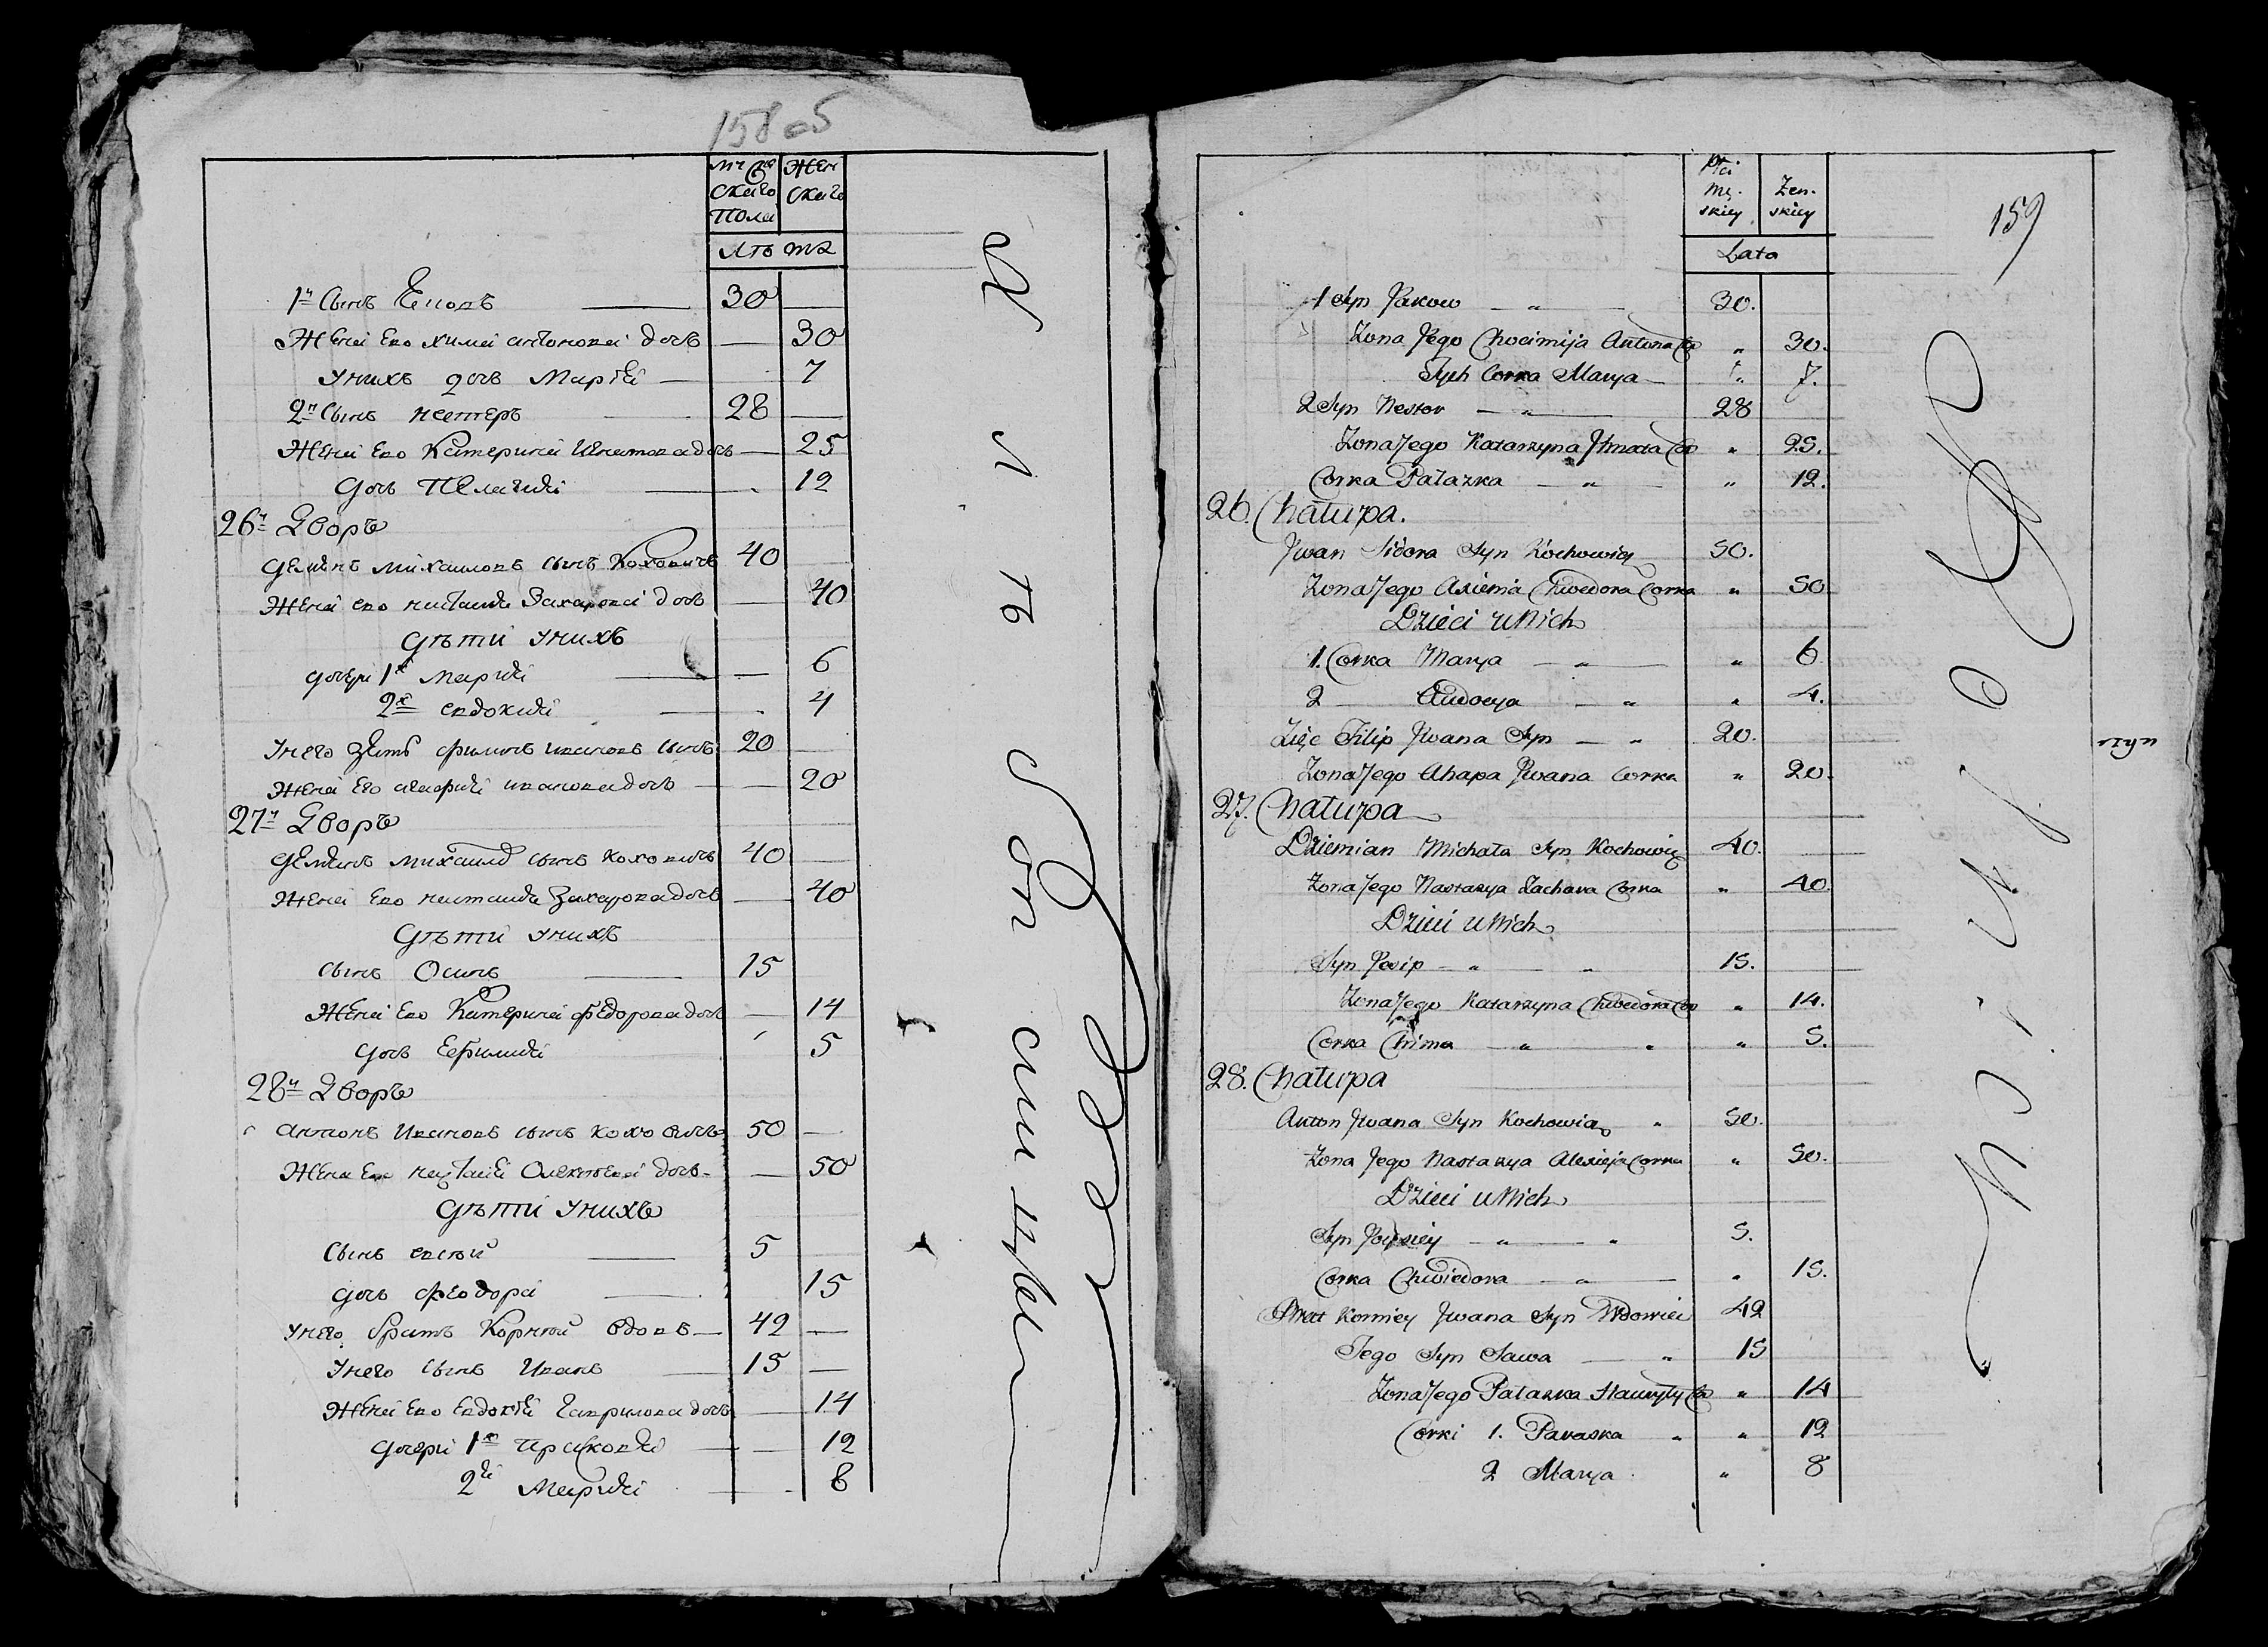 158 об
Мужескаго Пола
Женскаго
Лѣта
1й Сынъ 30
Жена ево Химка антонова дочь — 30
Унихъ дочь Мария — 7
2й Сынъ нестеръ 28 —
Жена Ево Катерина Игнатова дочь — 25
Дочь Пелагия — 12
26й Дворъ
Демянъ михаиловъ сынъ Коховичъ 40
Жена ево настасия Захарова дочь — 40
Дѣти унихъ
дочери 1я Мария — 6
2я евдокия — 4
Унего Зять филипъ ивановъ сынъ 20 —
Жена Его агафия иванова дочь — 20
27й Дворъ
Демянъ михаила сынъ коховичъ 40 —
Жена Ево настасия Захарова дочь — 40
Дѣти унихъ
сынъ Осипъ 15
Жена Ево Катерина федорова дочь — 14
дочь 5
28й Дворъ
антонъ Ивановъ сынъ коховичъ 50 —
Жена Ево настасия Олексѣева дочь — 50
Дѣти унихъ
Сынъ 5
дочь феодора 15
унего братъ Корнѣй вдовъ — 42 —
Унего сынъ Иванъ 15 —
Жена Ево Евдокия Гаврилова дочь — 14
дочери 1я Прасковия — 12
2я Мария 8
159
Płci Męskiey
Żenskiey
Lata
1 Syn Jakow — „ — 30.
Żona Jego Chocimija Antona Co „ 30.
Tych Corka Marya — „ 7.
2 Syn Nestor — „ — 28
Żona Jego Katarzyna Ihnata Co „ 25.
Corka Pałazka — „ — „ 12.
26. Chałupa.
Jwan Sidora Syn Kochowicz 50.
Żona Jego Axienia Chwedora Corka „ 50
Dzieci u Nich
1. Corka Marya — „ — „ 6
2 Audocya — „ „ 4.
Zięc Filip Jwana Syn — „ 20.
Żona Jego Ahapa Jwana Corka „ 20.
27. Chałupa
Dziemian Michała Syn Kochowicz 40.
Żona Jego Nastazya Zachara Corka „ 40.
Dzieci u Nich
Syn Josip — „ — „ 15.
Żona Jego Katarzyna Chwedora Co „ 14.
Corka Chima — „ „ „ 5.
28. Chałupa
Anton Jwana Syn Kochowicz „ 50.
Żona Jego Nastazya Alexieja Corka „ 50.
Dzieci u Nich
Syn — „ — „ 5.
Corka Chwiedora — „ — „ 15.
Brat Korniey Jwana Syn Wdowiec 42
Jego Syn Sawa — „ 15
Żona Jego Pałazka Hawryły Co „ 14
Corki 1. Paraska „ „ 12
2 Marya „ 8